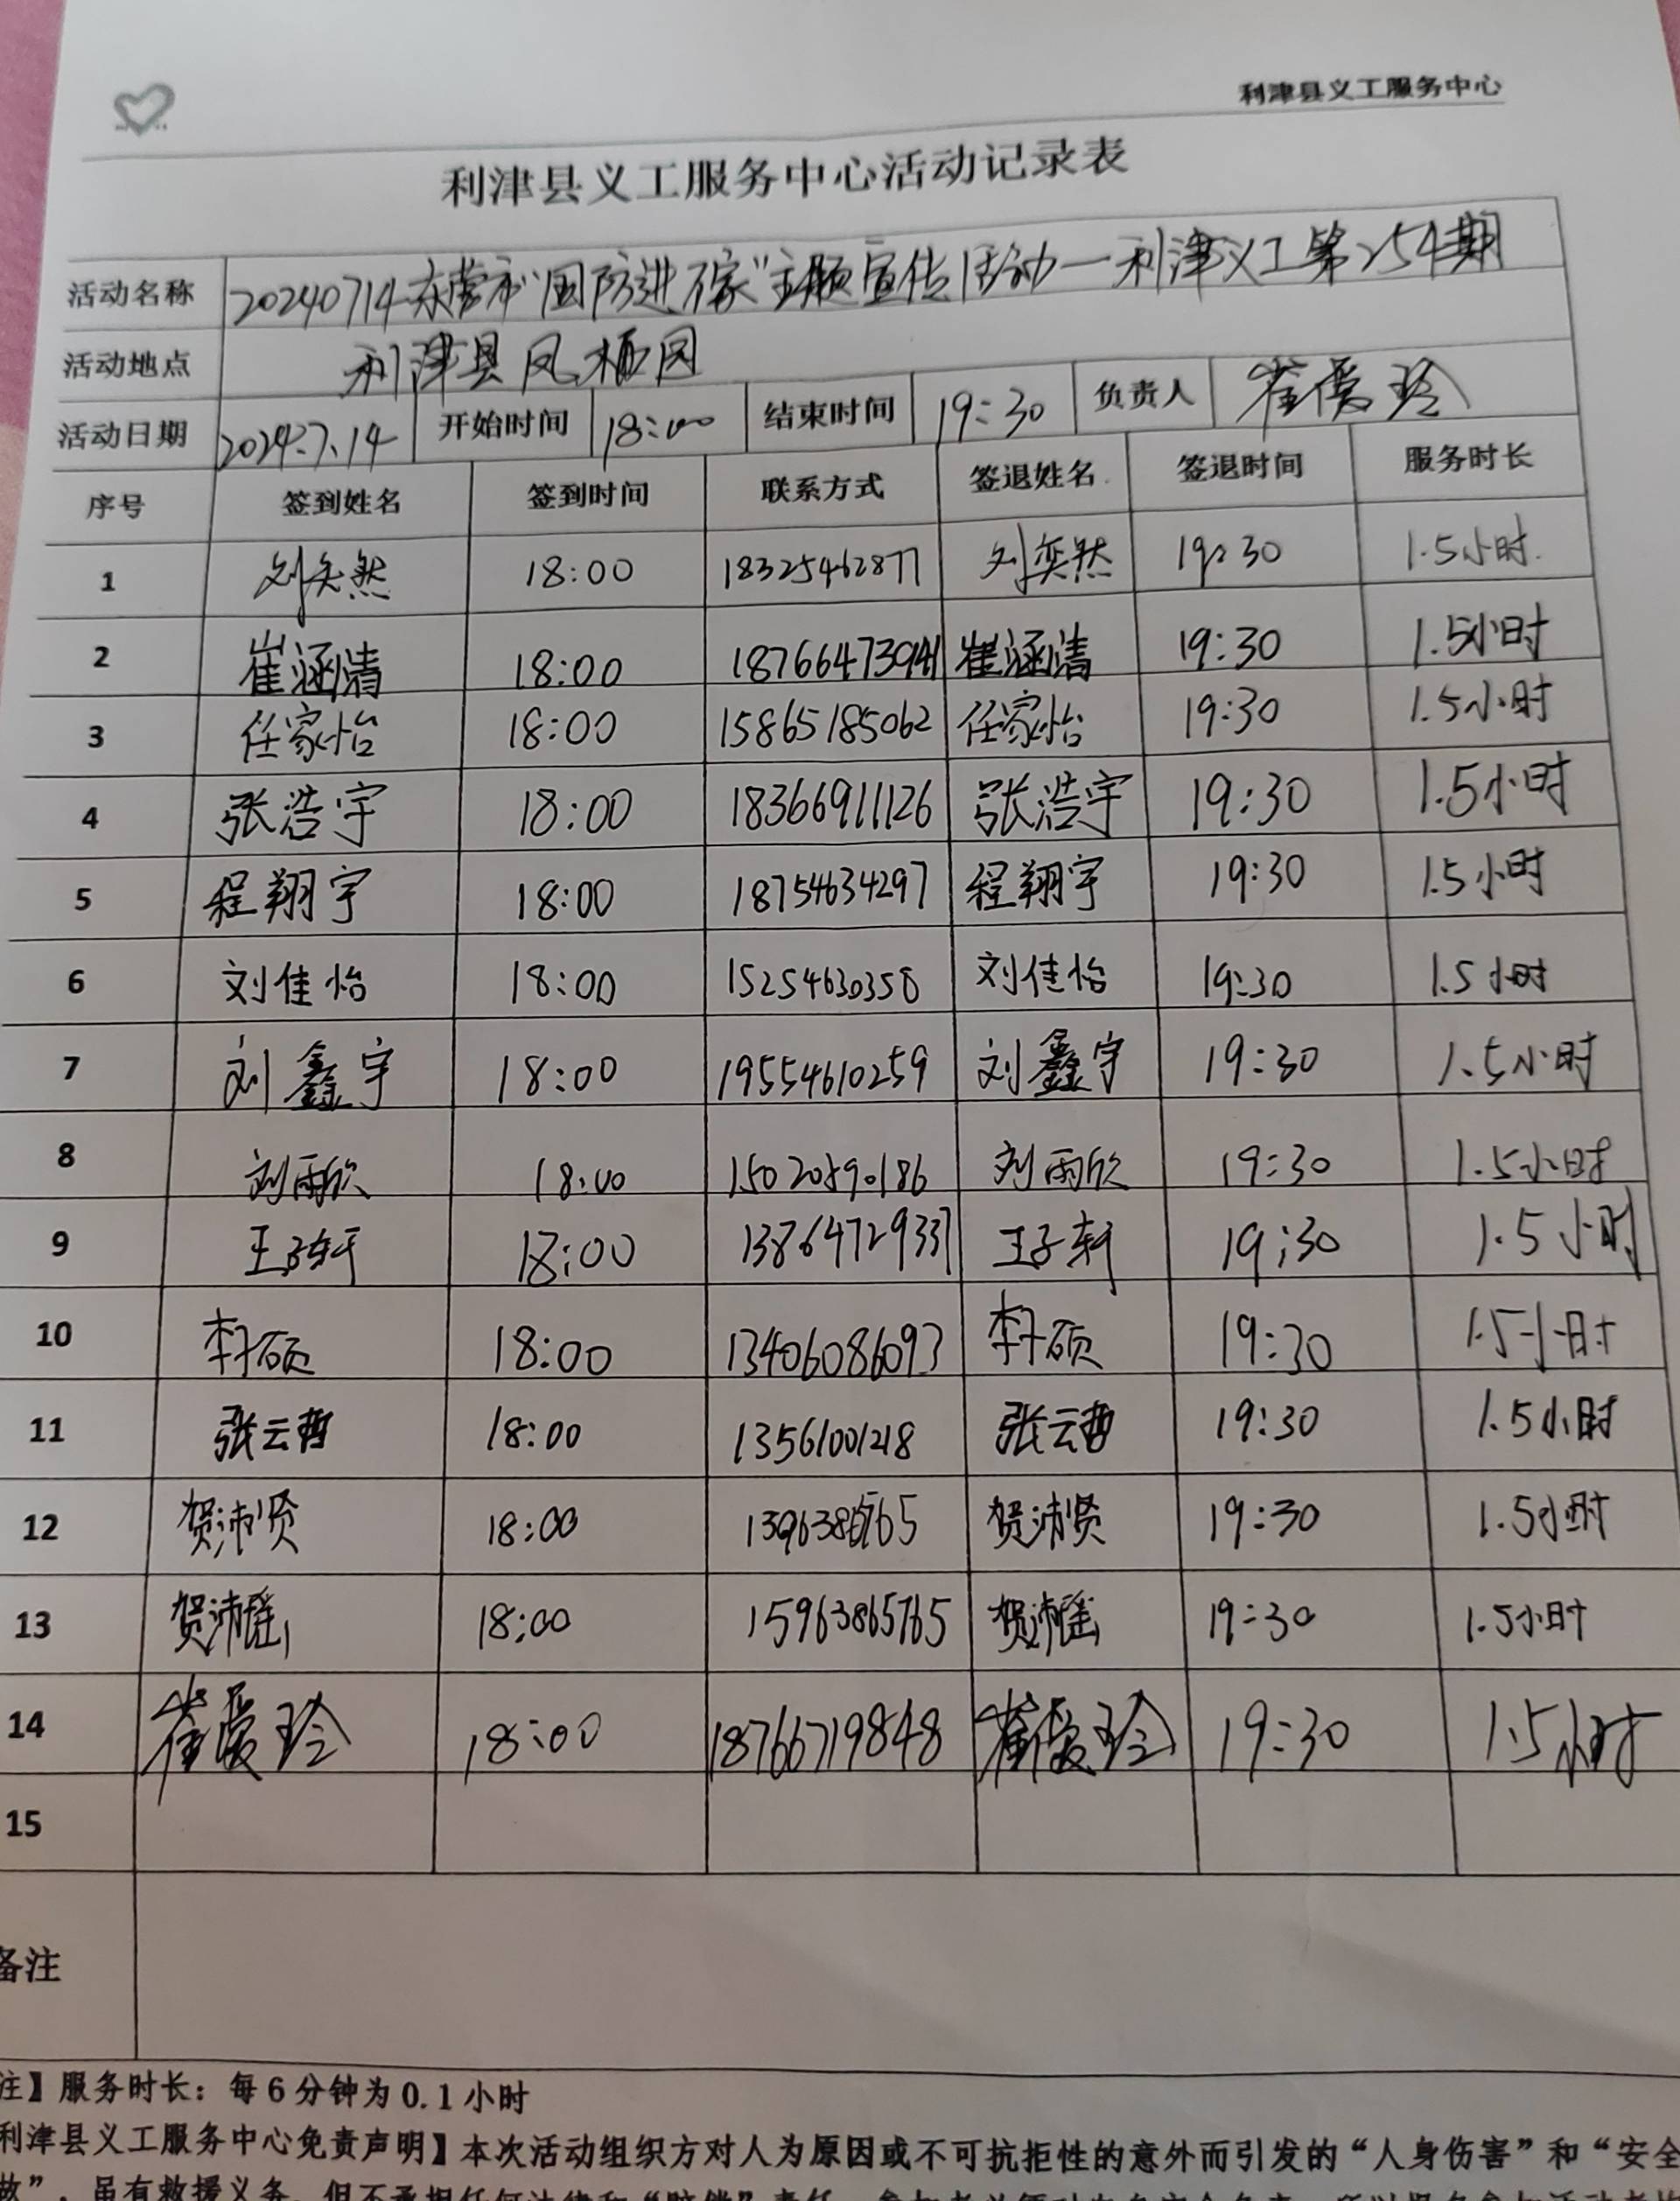 利津县义工服务中心
利津县义工服务中心活动记录表
活动名称 20240714东营市"国防进万家"主题宣传活动一利津义工第254期
活动地点 利津县凤栖园
活动日期 2024.7.14 开始时间 18:00 结束时间 19:30 负责人 崔爱玲
序号 签到姓名 签到时间 联系方式 签退姓名 签退时间 服务时长
1 刘奕然 18:00 18325462877 刘奕然 19:30 1.5小时
2 崔涵清 18:00 崔涵清 19:30 1.5小时
3 任家怡 18:00 15865185062 任家怡 19:30 1.5小时
4 张浩宇 18:00 18366911126 张浩宇 19:30 1.5小时
5 程翔宇 18:00 18754634297 程翔宇 19:30 1.5小时
6 刘佳怡 18:00 15254630358 刘佳怡 19:30 1.5小时
7 刘鑫宇 18:00 19554610259 刘鑫宇 19:30 1.5小时
8 刘雨欣 18:00 15020590186 刘雨欣 19:30 1.5小时
9 王子轩 18:00 13864729337 王子轩 19:30 1.5小时
10 李硕 18:00 13406086093 李硕 19:30 1.5小时
11 张云哲 18:00 13561001218 张云哲 19:30 1.5小时
12 贺沛贤 18:00 贺沛贤 19:30 1.5小时
13 贺沛瑶 18:00 15963865765 贺沛瑶 19:30 1.5小时
14 崔爱玲 18:00 18766719848 崔爱玲 19:30 1.5小时
15
备注
注】服务时长：每6分钟为0.1小时
利津县义工服务中心免责声明】本次活动组织方对人为原因或不可抗拒性的意外而引发的“人身伤害”和“安全
故”，虽有救援义务，但不承担任何法律和“赔偿”责任，